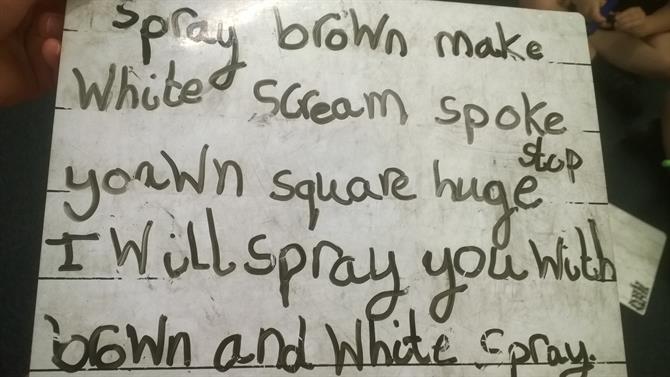 spray brown make
White scream spoke
stop
yoawn square huge
I Will spray you With
brown and White spray.